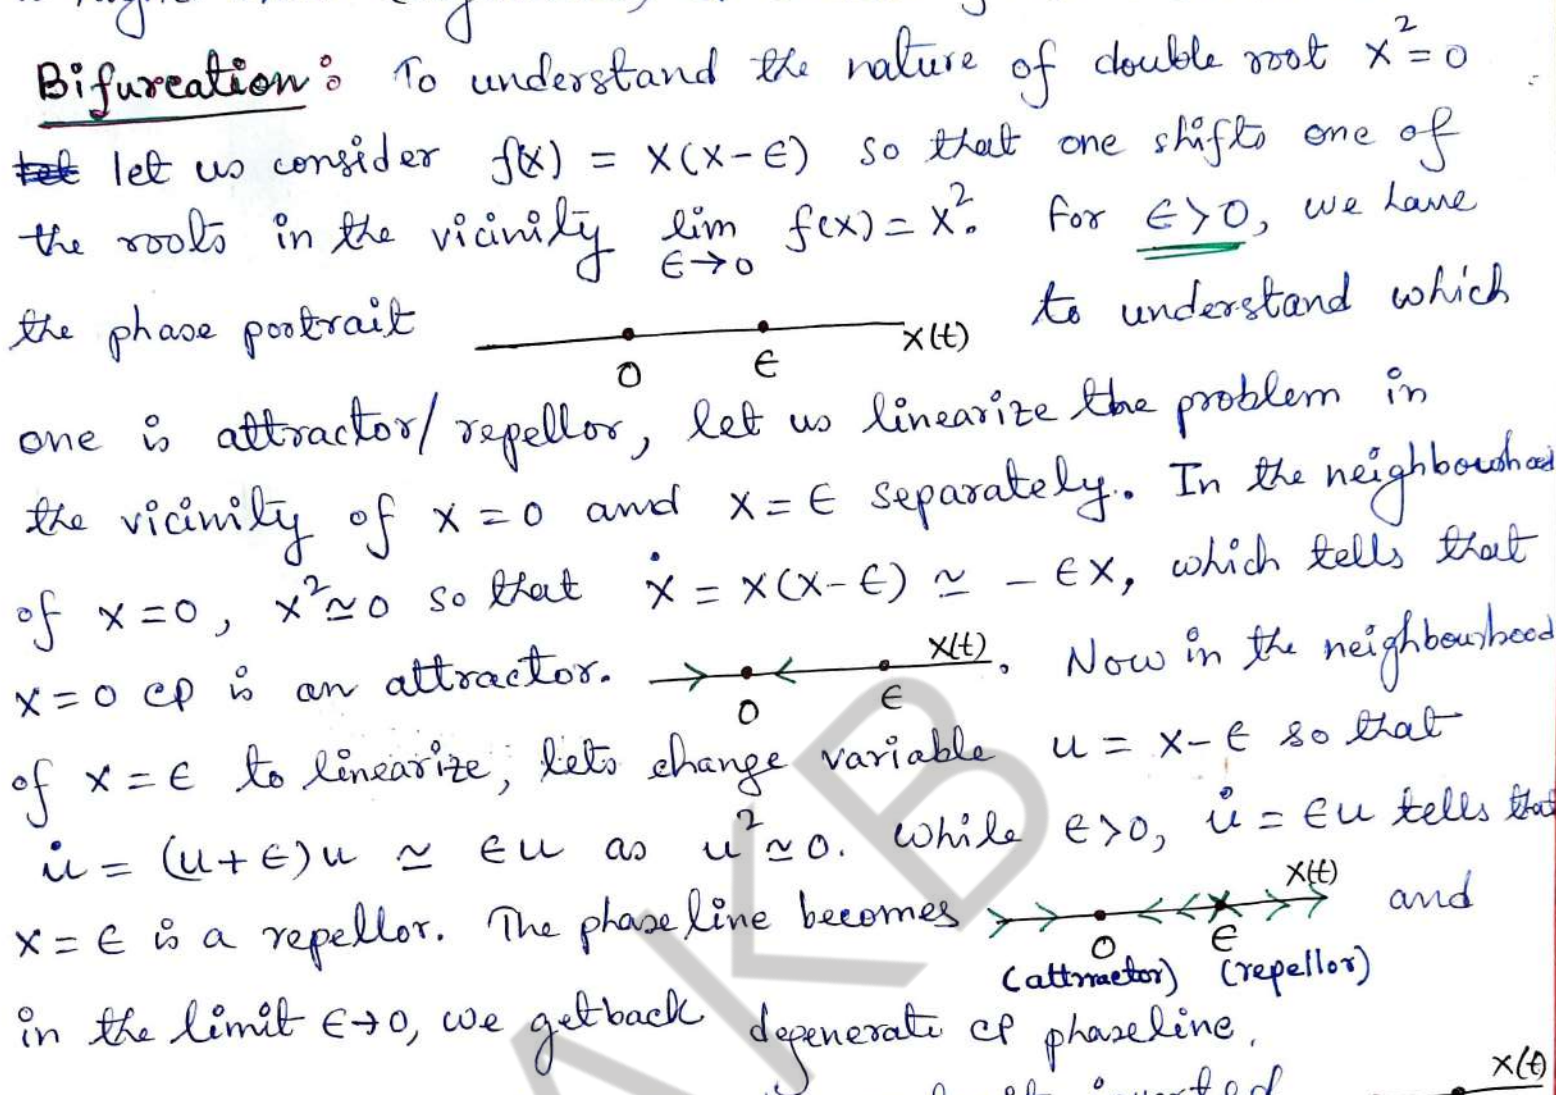 Bifurcation : To understand the nature of double root x² = 0
let us consider f(x) = x(x-ϵ) so that one shifts one of
the roots in the vicinity lim ϵ→0 f(x) = x². For ϵ>0, we have
the phase portrait 0 ϵ x(t) to understand which
one is attractor/repellor, let us linearize the problem in
the vicinity of x=0 and x=ϵ separately. In the neighbourhood
of x=0, x²≃0 so that ẋ = x(x-ϵ) ≃ -ϵx, which tells that
x=0 CP is an attractor. 0 ϵ x(t). Now in the neighbourhood
of x=ϵ to linearize, lets change variable u = x-ϵ so that
u̇ = (u+ϵ)u ≃ ϵu as u²≃0. While ϵ>0, u̇ = ϵu tells that
x=ϵ is a repellor. The phase line becomes 0 ϵ x(t) and
(attractor) (repellor)
in the limit ϵ→0, we get back degenerate CP phaseline.
x(t)
AKB